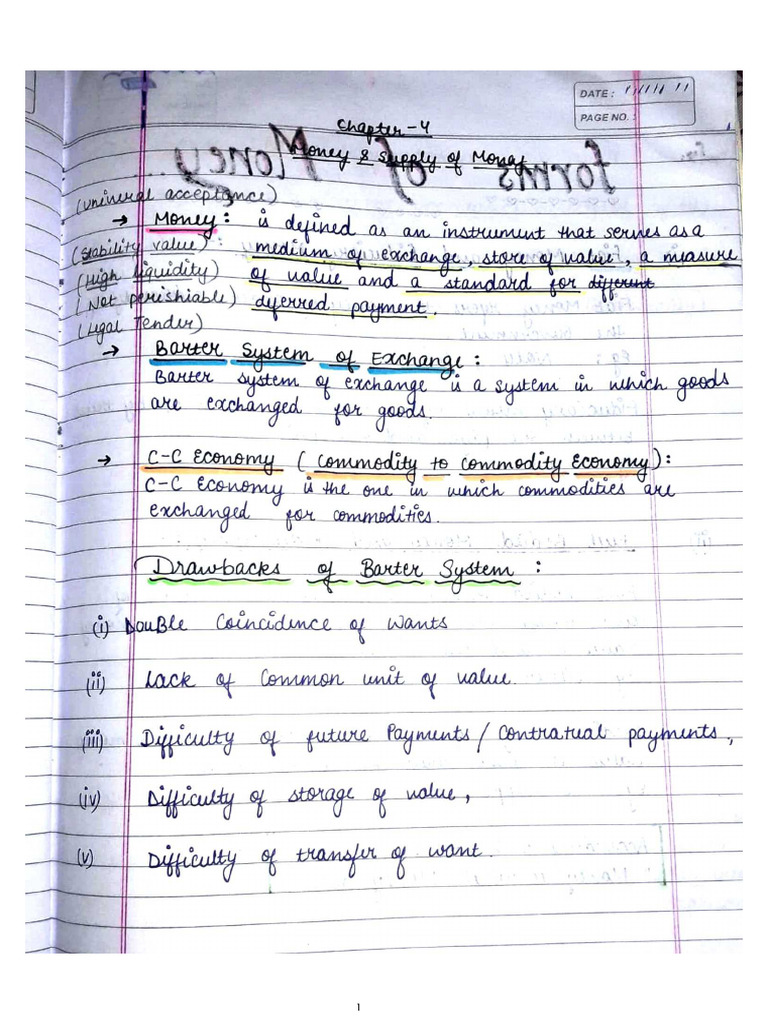 DATE :
PAGE NO. :
Chapter-4
Money & Supply of Money
forms of Money
(Univeral acceptance)
→ Money : is defined as an instrument that serves as a
(Stability value) medium of exchange, store of value, a measure
(High liquidity) of value and a standard for different
(Not perishiable) deferred payment.
(Legal Tender)
→ Barter System of Exchange :
Barter system of exchange is a system in which goods
are exchanged for goods.
→ C-C Economy (Commodity to Commodity Economy) :
C-C Economy is the one in which commodities are
exchanged for commodities.
Drawbacks of Barter System :
(i) Double Coincidence of Wants
(ii) Lack of Common unit of value.
(iii) Difficulty of future Payments / Contratual payments,
(iv) Difficulty of storage of value,
(v) Difficulty of transfer of want.
1